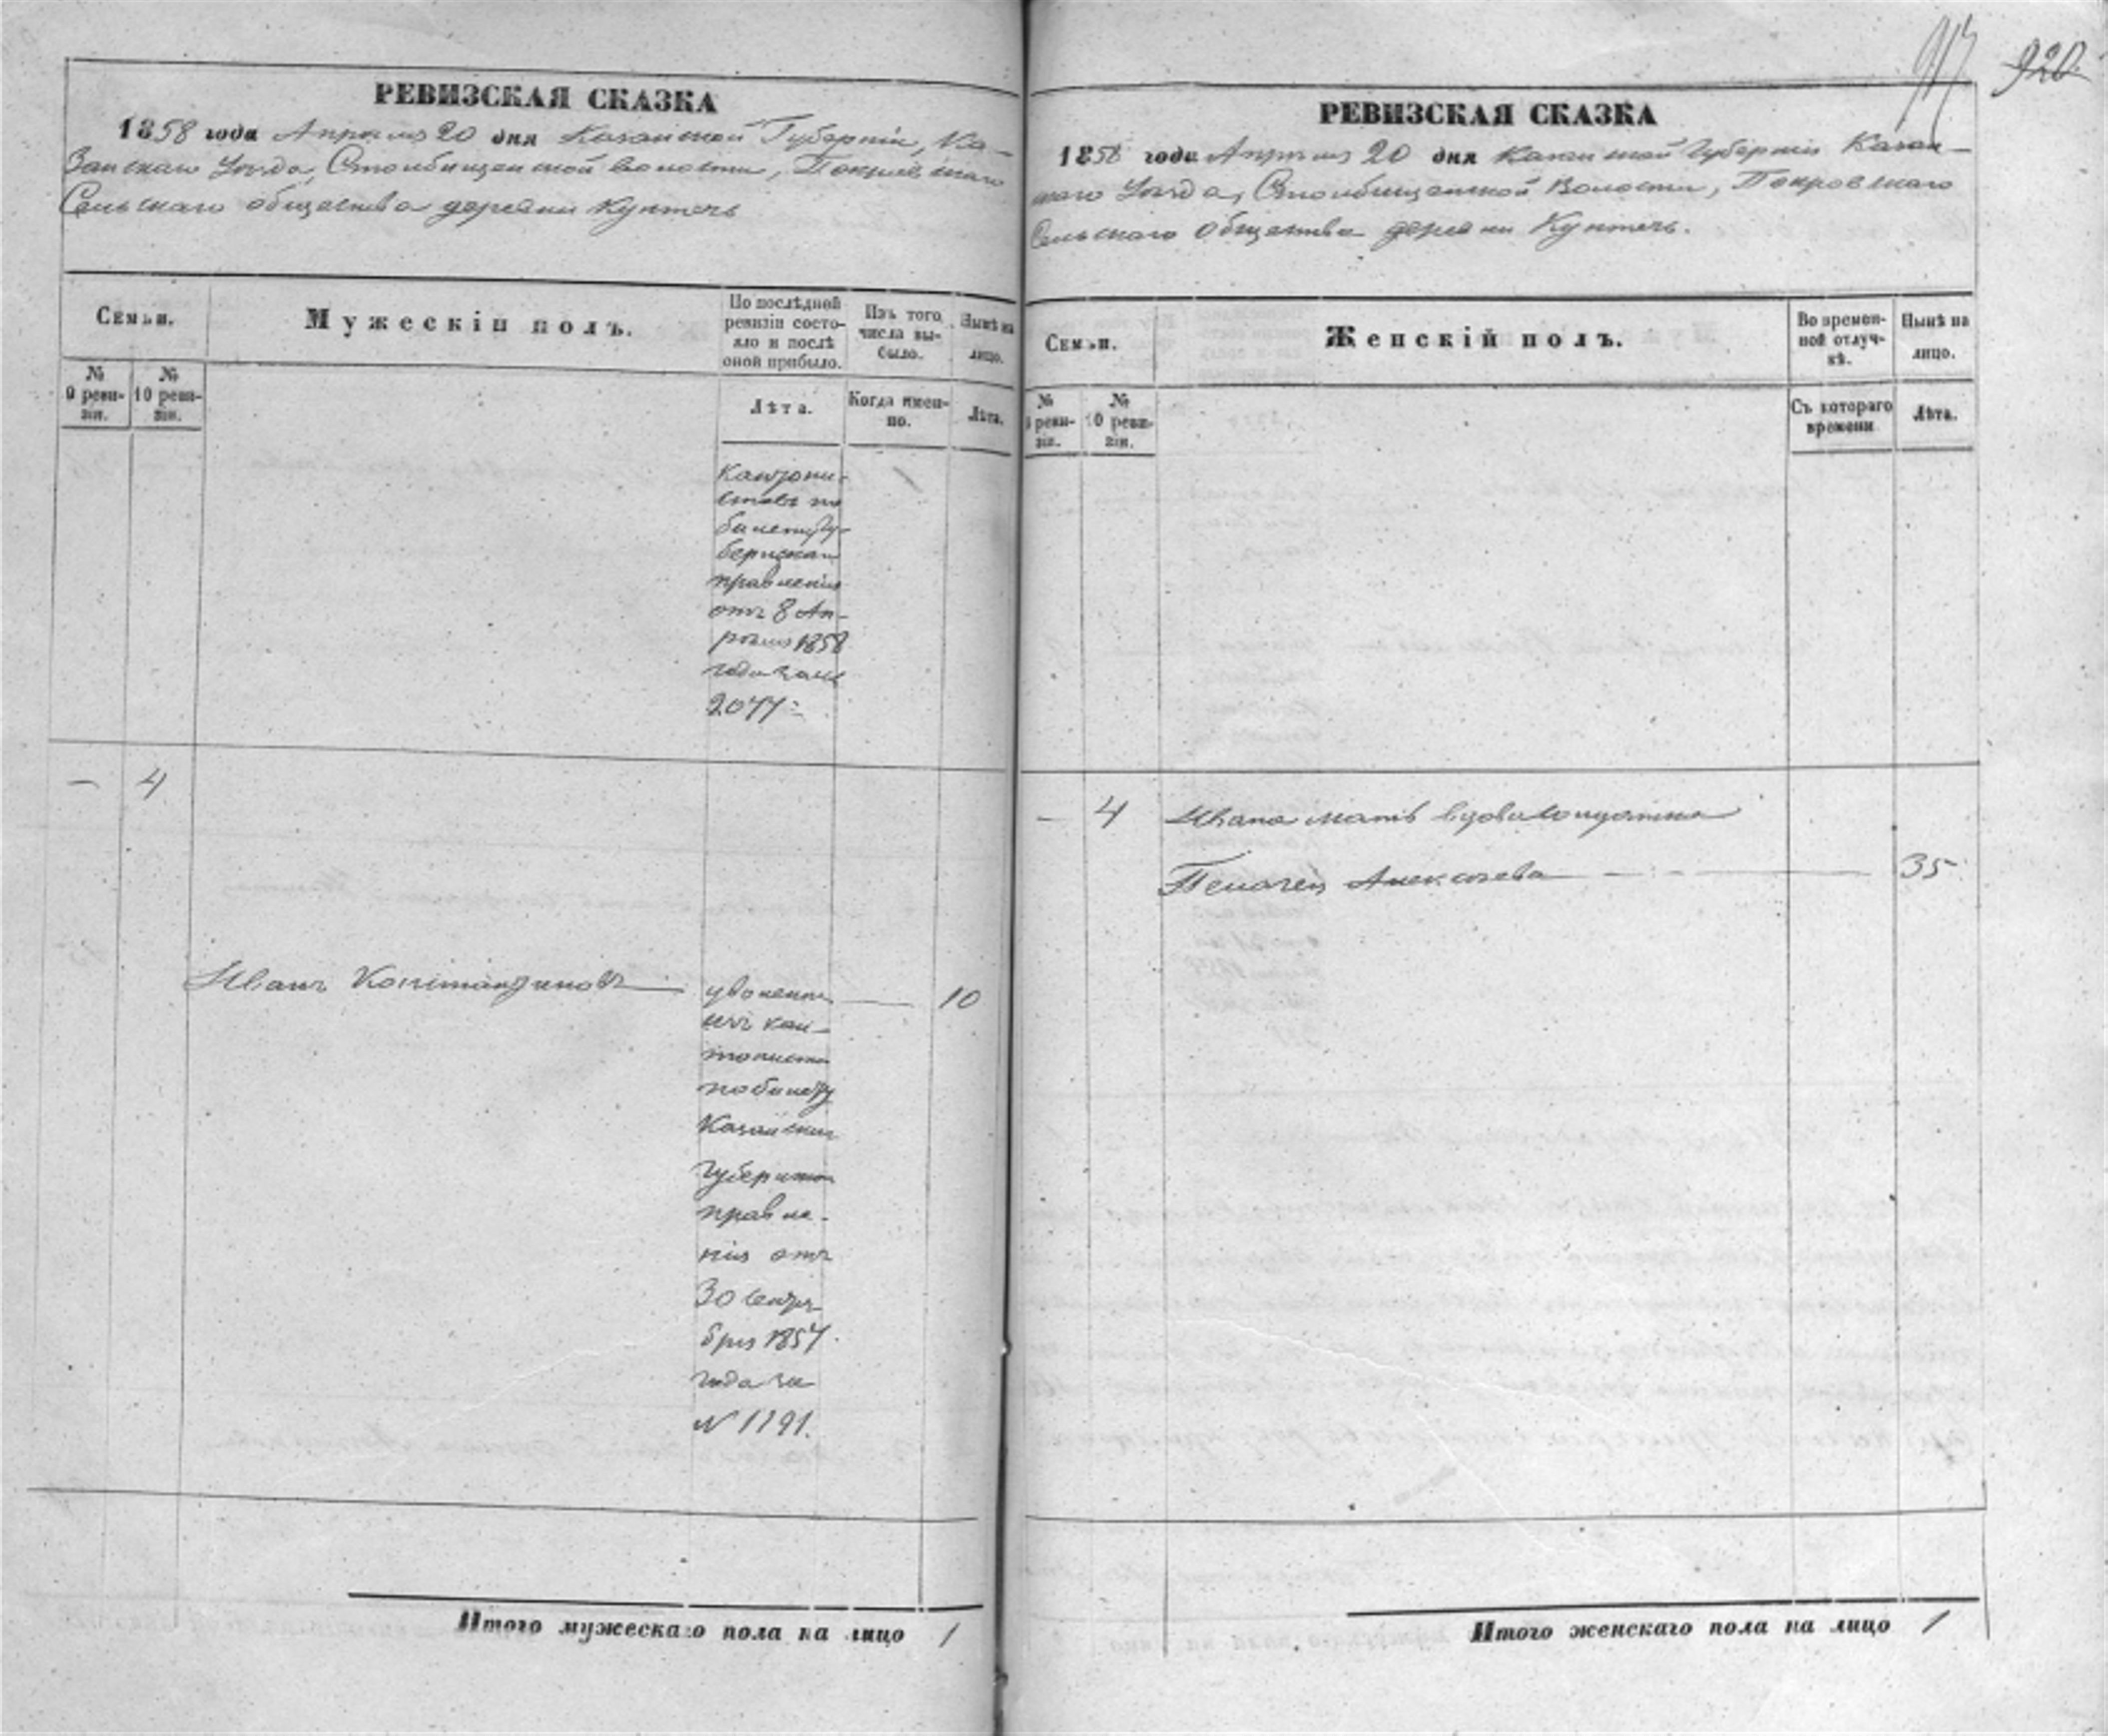 РЕВИЗСКАЯ СКАЗКА
1858 года Апрѣля 20 дня Казанской Губерніи, Ка-
занскаго Уѣзда, Столбищенской волости, Покровскаго
Сельскаго общества деревни Куптечь
Семьи.
Мужескій полъ.
По послѣдней ревизіи состо-
яло и послѣ
оной прибыло.
Изъ того
числа вы-
было.
Нынѣ на
лицо.
№
9 реви-
зіи.
№
10 реви-
зіи.
Лѣта.
Когда имен-
но.
Лѣта.
Кантони-
стовъ по
билету Гу-
бернскаго
правленія
отъ 8 Ап-
рѣля 1858
года за №
2077
— 4
Иванъ Констандиновъ
уволенъ
изъ кан-
тонистовъ
по билету
Казанскаго
Губернскаго
правле-
нія отъ
30 Сентя-
бря 1857
года за
№ 1191.
10
Итого мужескаго пола на лицо 1
917 920.
РЕВИЗСКАЯ СКАЗКА
1858 года Апрѣля 20 дня Казанской Губерніи Казан-
скаго Уѣзда, Столбищенской Волости, Покровскаго
Сельскаго Общества деревни Куптечь.
Семьи.
Женскій полъ.
Во времен-
ной отлуч-
кѣ.
Нынѣ на
лицо.
№
9 реви-
зіи.
№
10 реви-
зіи.
Съ котораго
времени
Лѣта.
— 4 Ивана мать вдова солдатка
Пелагея Алексѣева 35
Итого женскаго пола на лицо 1